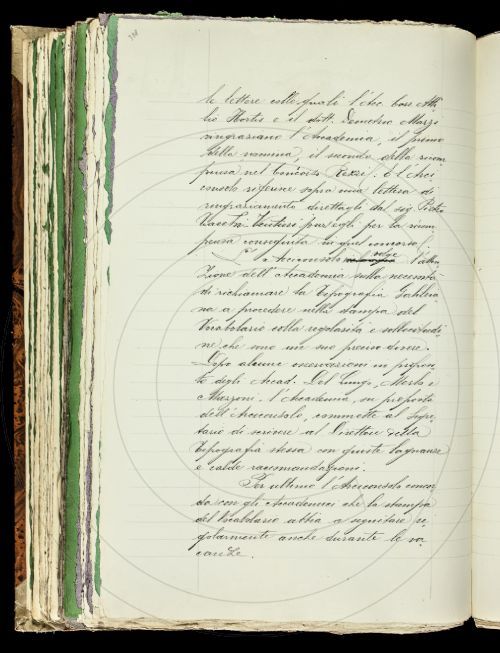 le lettere colle quali l'Acc. corr. Atti-
lio Hortis e il dott. Demetrio Marzi
ringraziano l'Accademia, il primo
della nomina, il secondo della ricom
pensa nel Concorso Rezzi. E l'Arci
consolo riferisce sopra una lettera di
ringraziamento direttagli dal sig. Pietro
Vacchi Venturi pur egli per la ricom
pensa conseguita in quel concorso.
L'Arciconsolo volge l'atten
zione dell'Accademia sulla necessità
di richiamare la Tipografia Galileia
na a procedere nella stampa del
Vocabolario colla regolarità e sollecitudi
ne che sono un suo preciso dovere.
Dopo alcune osservazioni in proposi
to degli Accad. Del Lungo, Merlo e
Mazzoni, l'Accademia, su proposta
dell'Arciconsolo, commette al Segre
tario di scrivere al Direttore della
Tipografia stessa con giuste lagnanze
e calde raccomandazioni.
Per ultimo l'Arciconsolo concor
da con gli Accademici che la stampa
del Vocabolario abbia a seguitare re
golarmente anche durante le va
canze.